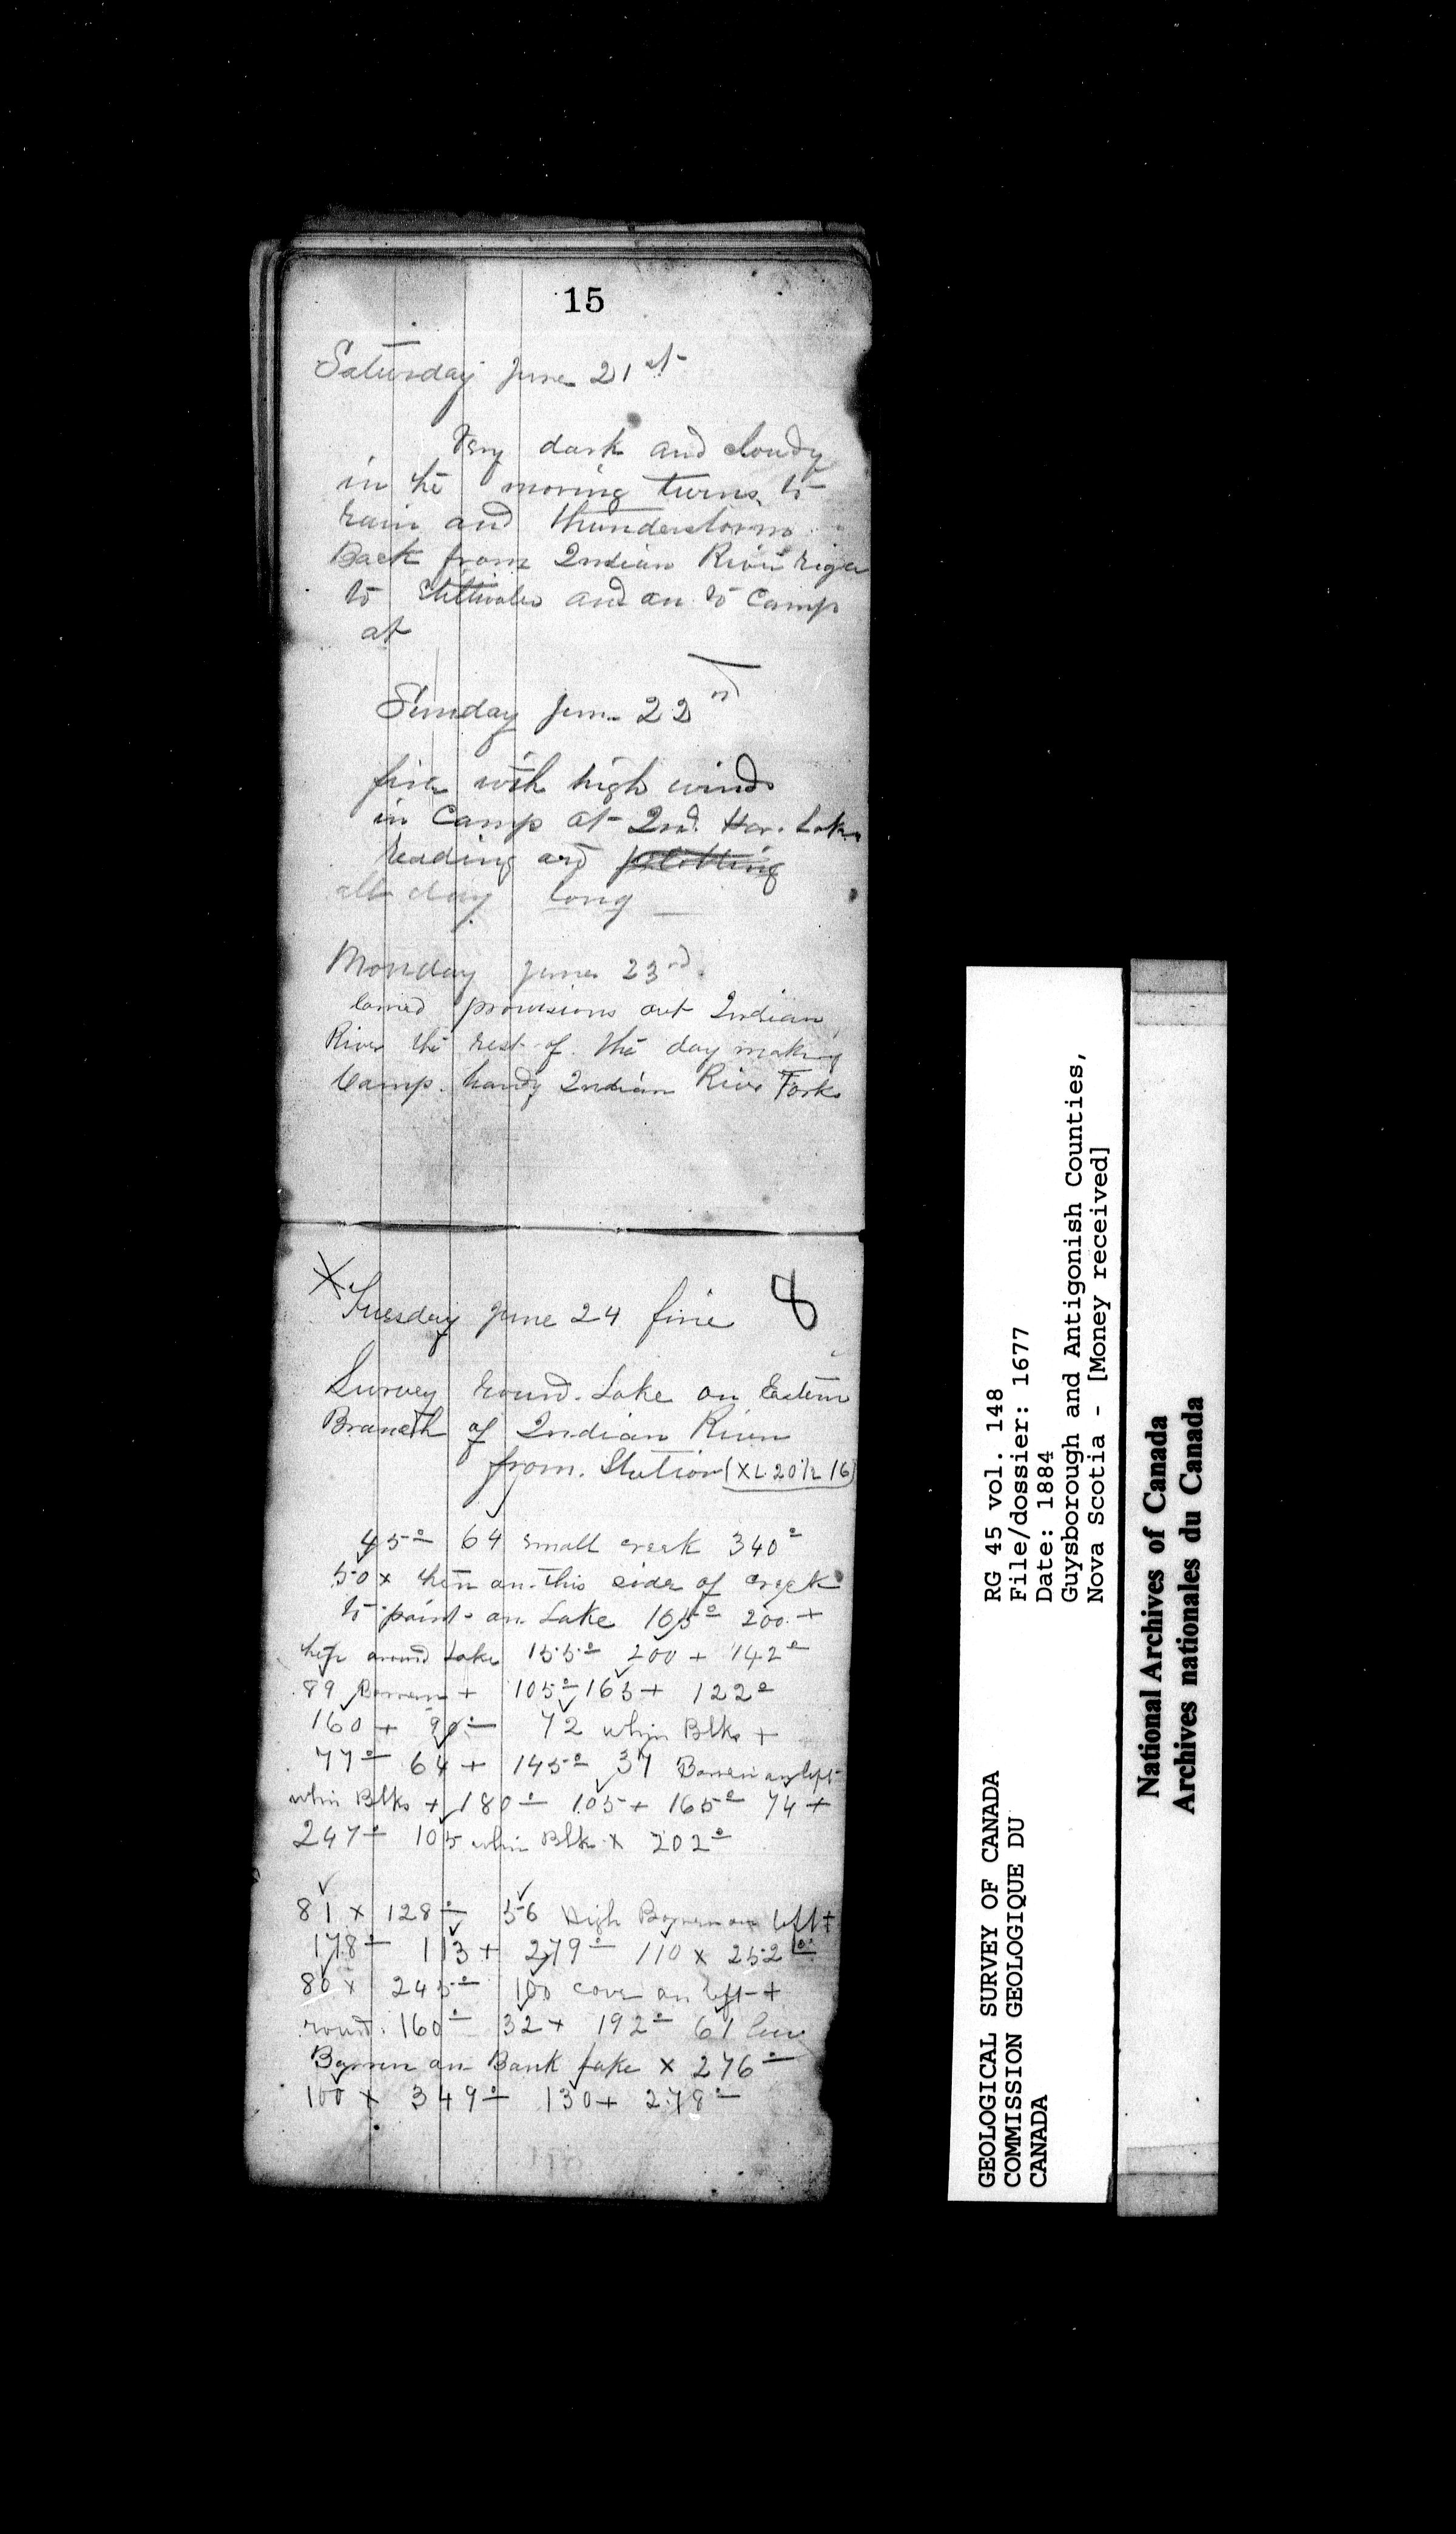 15
Saturday June 21st
Very dark and cloudy
in the moring turns to
rain and thunderstorm
Back from Indian River
to Stillwater and on to Camp
at
Sunday June 22nd
fine with high winds
in Camp at 2nd. Har. Lake
reading and plotting
all day long
Monday June 23rd
Carried provisions out Indian
River the rest of the day making
Camp. handy Indian River Forks
8
X Tuesday June 24 fine
Survey round. Lake on Eastern
Branch of Indian River
from. Station (XL 20½ 16)
45° 64 small creek 340°
50 x then on this side of creek
to point on Lake 165° 200 +
then around Lake 155° 200 + 142°
89 Barren + 105° 163 + 122°
160 + 90° 72 whin Blks +
77° 64 + 145° 37 Barren on left
whin Blks + 180° 105 + 165° 74 +
247° 105 whin Blk x 202°
81 x 128° 56 High Barren on left +
178° 113 + 279° 110 x 252°
80 x 245° 100 cove on left +
round. 160° 32 + 192° 61
Barren on Bank Lake x 276°
100 x 349° 130 + 278°
GEOLOGICAL SURVEY OF CANADA
COMMISSION GEOLOGIQUE DU
CANADA
RG 45 vol. 148
File/dossier: 1677
Date: 1884
Guysborough and Antigonish Counties,
Nova Scotia - [Money received]
National Archives of Canada
Archives nationales du Canada